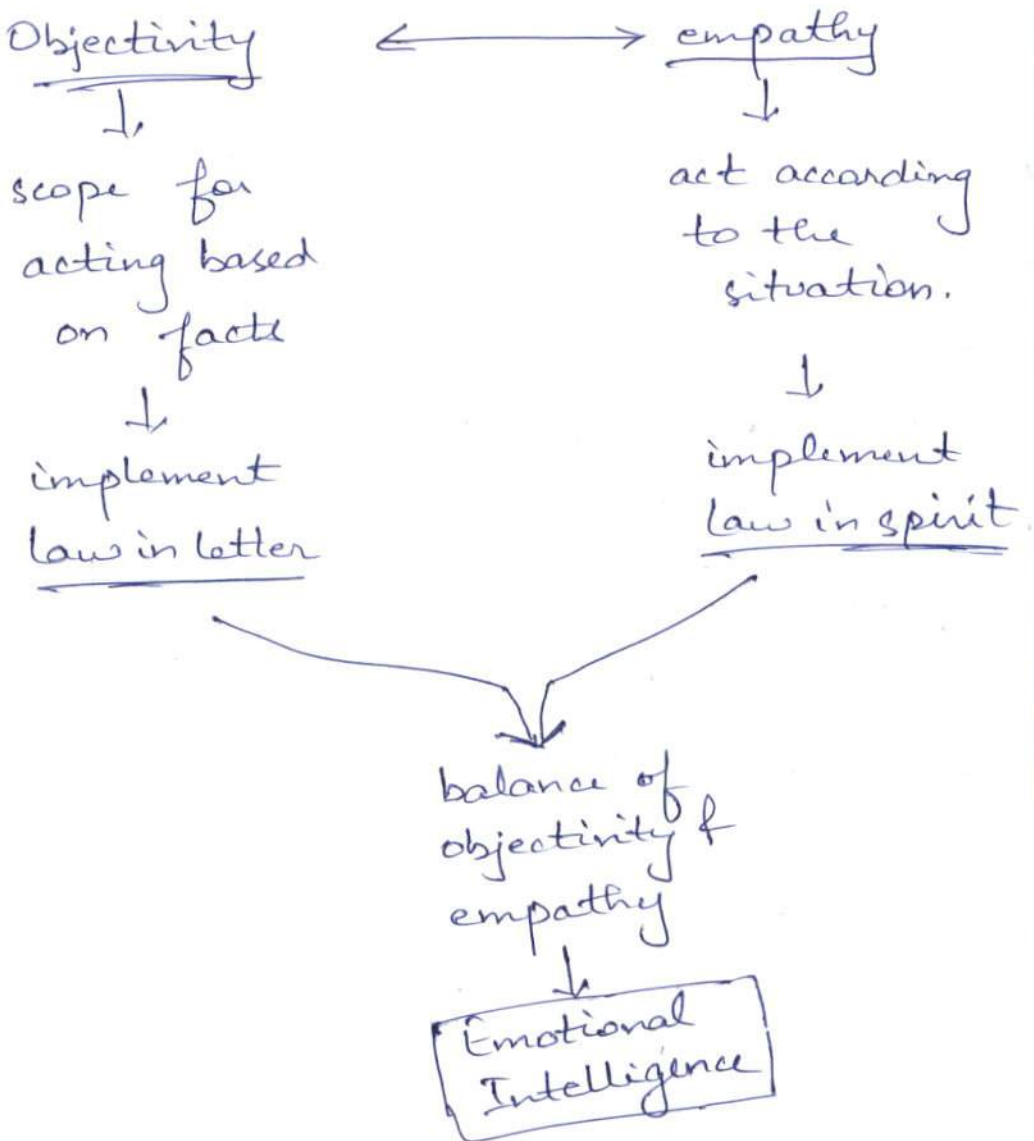 Objectivity
empathy
scope for
acting based
on facts
implement
law in letter
act according
to the
situation.
implement
law in spirit.
balance of
objectivity &
empathy
Emotional
Intelligence